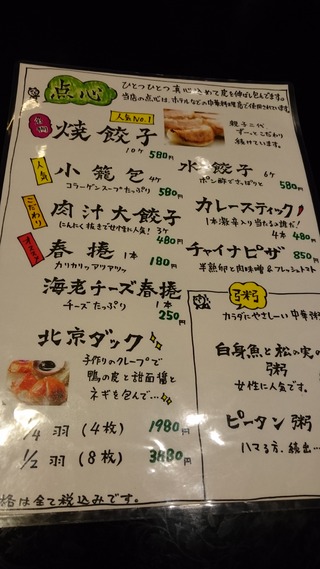 点心
ひとつひとつ真心込めて皮を伸ばし包んでます。
当店の点心は、ホテルなどの中華料理店で使用されています。
人気No.1
焼餃子
10ケ 580円
親子二代
ずーっとこだわり
続けています。
人気
小籠包 4ケ
コラーゲンスープたっぷり 580円
水餃子 6ケ
ポン酢でさっぱりと 580円
こだわり
肉汁大餃子
にんにく抜きで女性に人気! 3ケ
480円
カレースティック
1本激辛入り当るのは誰だ!
4本 480円
オススメ
春捲 1本
カリカリッアツアツッ 180円
チャイナピザ 850円
半熟卵と肉味噌&フレッシュトマト
海老チーズ春捲
チーズたっぷり 1本
250円
粥
カラダにやさしーい中華粥
白身魚と松の実の
粥
女性に人気です。
ピータン粥
ハマる方、続出…
北京ダック
手作りのクレープで
鴨の皮と甜面醤と
ネギを包んで…
1/4羽 (4枚) 1980円
1/2羽 (8枚) 3480円
格は全て税込みです。